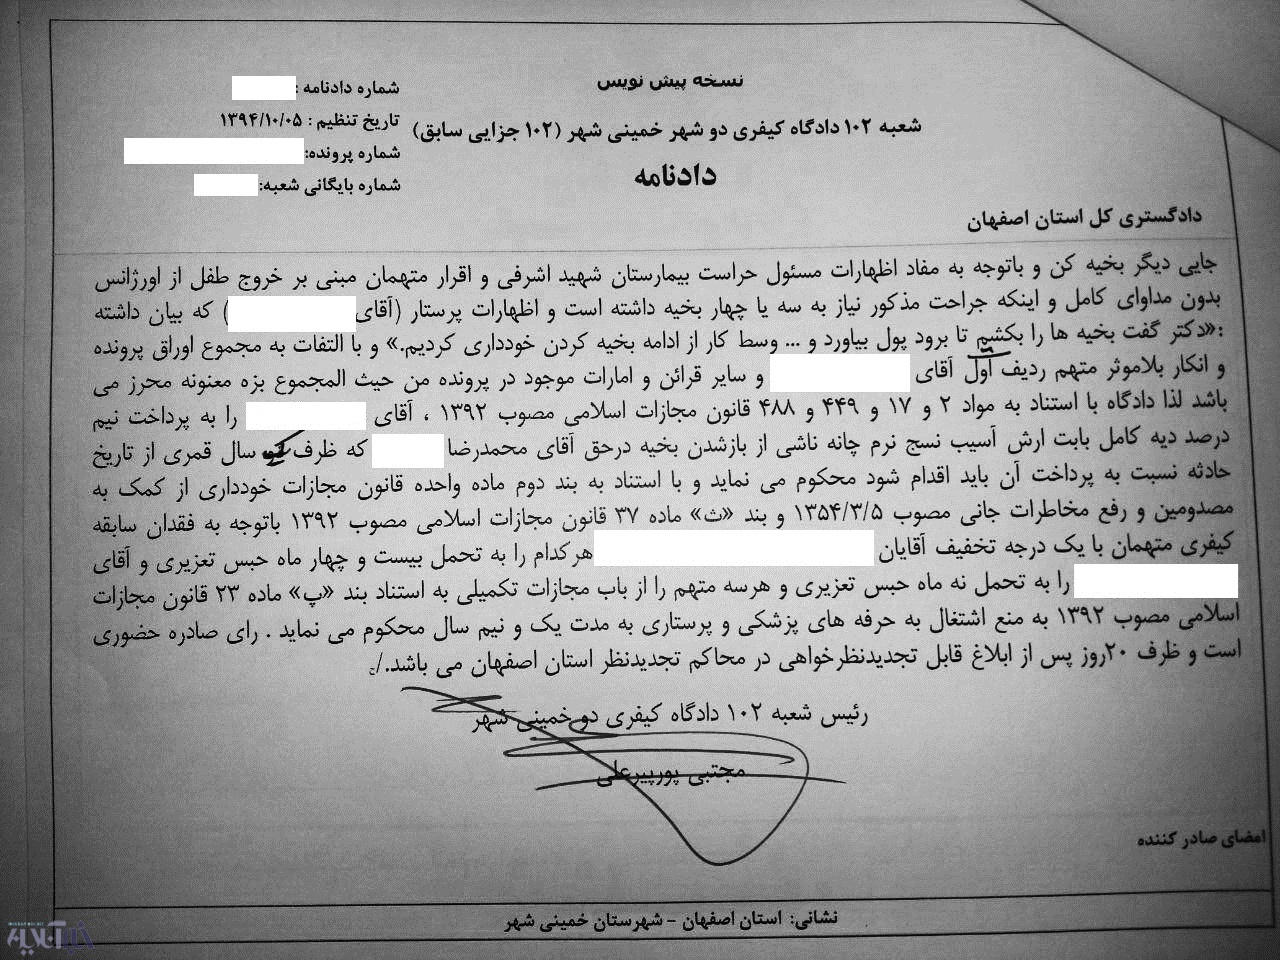 نسخه پیش نویس
شماره دادنامه :
شعبه ۱۰۲ دادگاه کیفری دو شهر خمینی شهر (۱۰۲ جزایی سابق)
تاریخ تنظیم : ۱۳۹۴/۱۰/۰۵
شماره پرونده:
دادنامه
شماره بایگانی شعبه:
دادگستری کل استان اصفهان
جایی دیگر بخیه کن و باتوجه به مفاد اظهارات مسئول حراست بیمارستان شهید اشرفی و اقرار متهمان مبنی بر خروج طفل از اورژانس
بدون مداوای کامل و اینکه جراحت مذکور نیاز به سه یا چهار بخیه داشته است و اظهارات پرستار (آقای ) که بیان داشته
:«دکتر گفت بخیه ها را بکشم تا برود پول بیاورد و ... وسط کار از ادامه بخیه کردن خودداری کردیم.» و با التفات به مجموع اوراق پرونده
و انکار بلاموثر متهم ردیف اول آقای و سایر قرائن و امارات موجود در پرونده من حیث المجموع بزه معنونه محرز می
باشد لذا دادگاه با استناد به مواد ۲ و ۱۷ و ۴۴۹ و ۴۸۸ قانون مجازات اسلامی مصوب ۱۳۹۲ ، آقای را به پرداخت نیم
درصد دیه کامل بابت ارش آسیب نسج نرم چانه ناشی از بازشدن بخیه درحق آقای محمدرضا که ظرف سال قمری از تاریخ
حادثه نسبت به پرداخت آن باید اقدام شود محکوم می نماید و با استناد به بند دوم ماده واحده قانون مجازات خودداری از کمک به
مصدومین و رفع مخاطرات جانی مصوب ۱۳۵۴/۳/۵ و بند «ث» ماده ۳۷ قانون مجازات اسلامی مصوب ۱۳۹۲ باتوجه به فقدان سابقه
کیفری متهمان با یک درجه تخفیف آقایان هرکدام را به تحمل بیست و چهار ماه حبس تعزیری و آقای
را به تحمل نه ماه حبس تعزیری و هرسه متهم را از باب مجازات تکمیلی به استناد بند «پ» ماده ۲۳ قانون مجازات
اسلامی مصوب ۱۳۹۲ به منع اشتغال به حرفه های پزشکی و پرستاری به مدت یک و نیم سال محکوم می نماید . رای صادره حضوری
است و ظرف ۲۰روز پس از ابلاغ قابل تجدیدنظرخواهی در محاکم تجدیدنظر استان اصفهان می باشد./
رئیس شعبه ۱۰۲ دادگاه کیفری دو خمینی شهر
مجتبی پورپیرعلی
امضای صادر کننده
نشانی: استان اصفهان - شهرستان خمینی شهر
خبرآنلاین